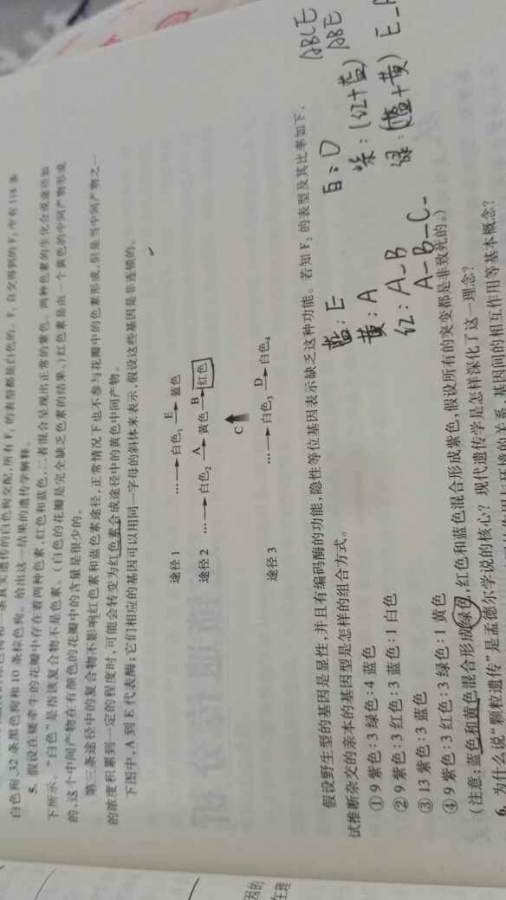 白色狗,32条黑色狗和10条棕色狗。给出这一结果的遗传学解释。
5. 假设在矮牵牛的花瓣中存在着两种色素,红色和蓝色,二者混合呈现出正常的紫色。两种色素的生化合成途径如
下所示。“白色”是指该复合物不是色素。(白色的花瓣是完全缺乏色素的结果。)红色素是由一个黄色的中间产物形成
的,这个中间产物在有颜色的花瓣中的含量是很少的。
第三条途径中的复合物不影响红色素和蓝色素途径,正常情况下也不参与花瓣中的色素形成,但是当中间产物之一
的浓度积累到一定的程度时,可能会转变为红色素合成途径中的黄色中间产物。
下图中,A到E代表酶;它们相应的基因可以用同一字母的斜体来表示,假设这些基因是非连锁的。
途径1 …→白色₁ E→蓝色
途径2 …→白色₂ A→黄色 B→红色
C
途径3 …→白色₃ D→白色₄
假设野生型的基因是显性,并且有编码酶的功能,隐性等位基因表示缺乏这种功能。若知F₂的表型及其比率如下,
试推断杂交的亲本的基因型是怎样的组合方式。
①9紫色:3绿色:4蓝色
②9紫色:3红色:3蓝色:1白色
③13紫色:3蓝色
④9紫色:3红色:3绿色:1黄色
(注意:蓝色和黄色混合形成绿色,红色和蓝色混合形成紫色,假设所有的突变都是非致死的。)
6. 为什么说“颗粒遗传”是孟德尔学说的核心?现代遗传学是怎样深化了这一理念?
基因间的相互作用等基本概念?
蓝:E
黄:A
红:A-B
A-B-C-
白:D
紫:(红+蓝)
绿:(蓝+黄)
ABCE
ABE